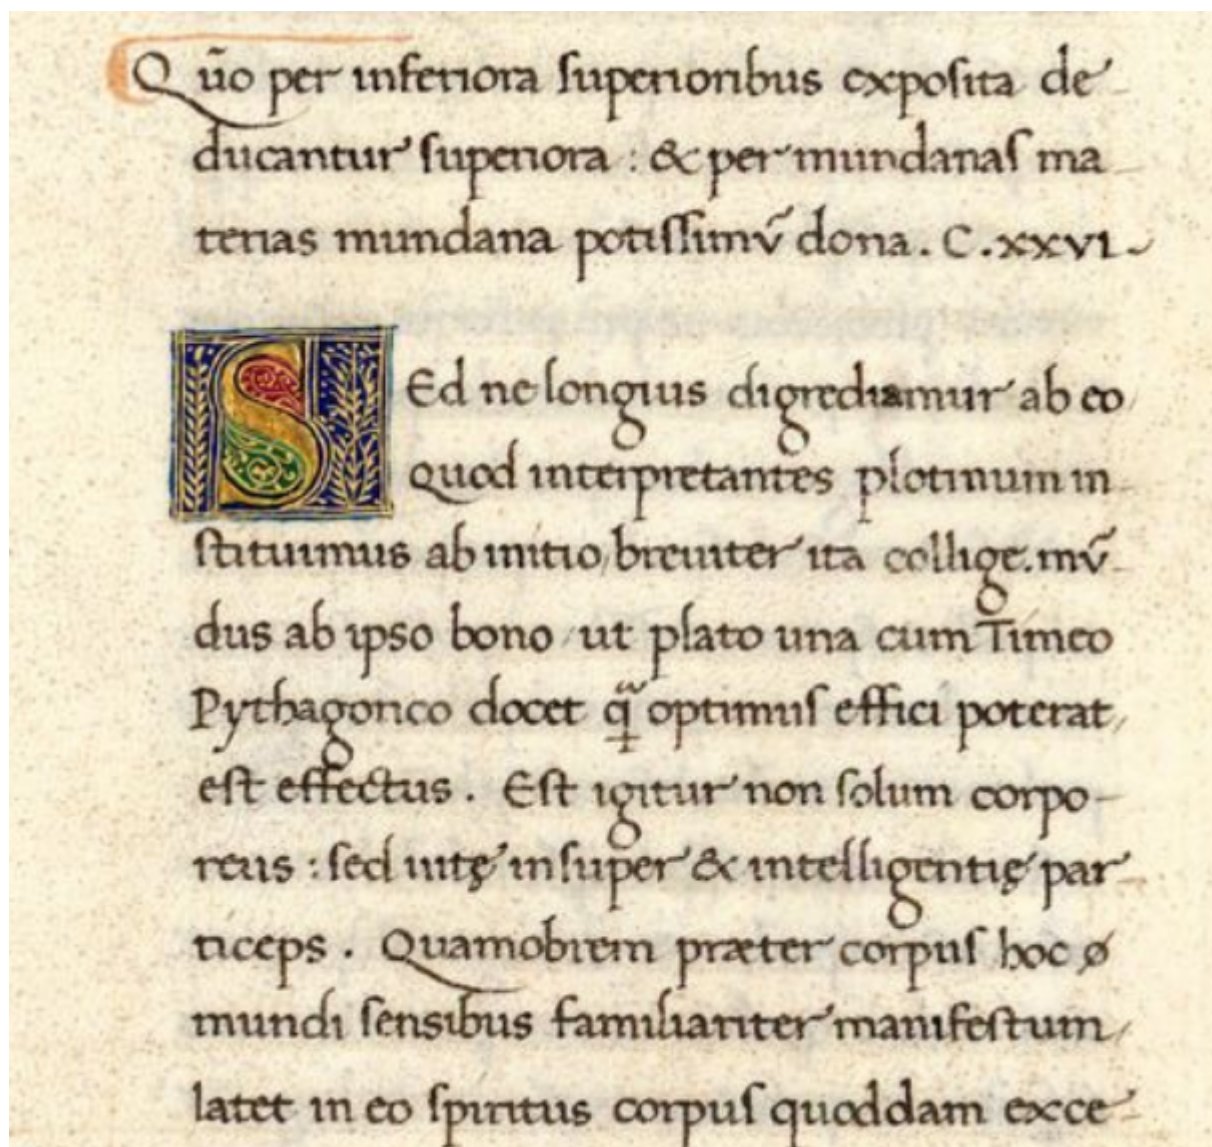 Qũo per inferiora superioribus exposita de
ducantur superiora : & per mundanas ma
terias mundana potissimũ dona. C.xxvi
SEd ne longius digrediamur ab eo
quod interpretantes plotinum in
stituimus ab initio, breuiter ita collige. mũ
dus ab ipso bono, ut plato una cum Timeo
Pythagorico docet q̃ optimus effici poterat,
est effectus. Est igitur non solum corpo-
reus : sed uitę insuper & intelligentię par
ticeps. Quamobrem præter corpus hoc ø
mundi sensibus familiariter manifestum,
latet in eo spiritus corpus quoddam exce